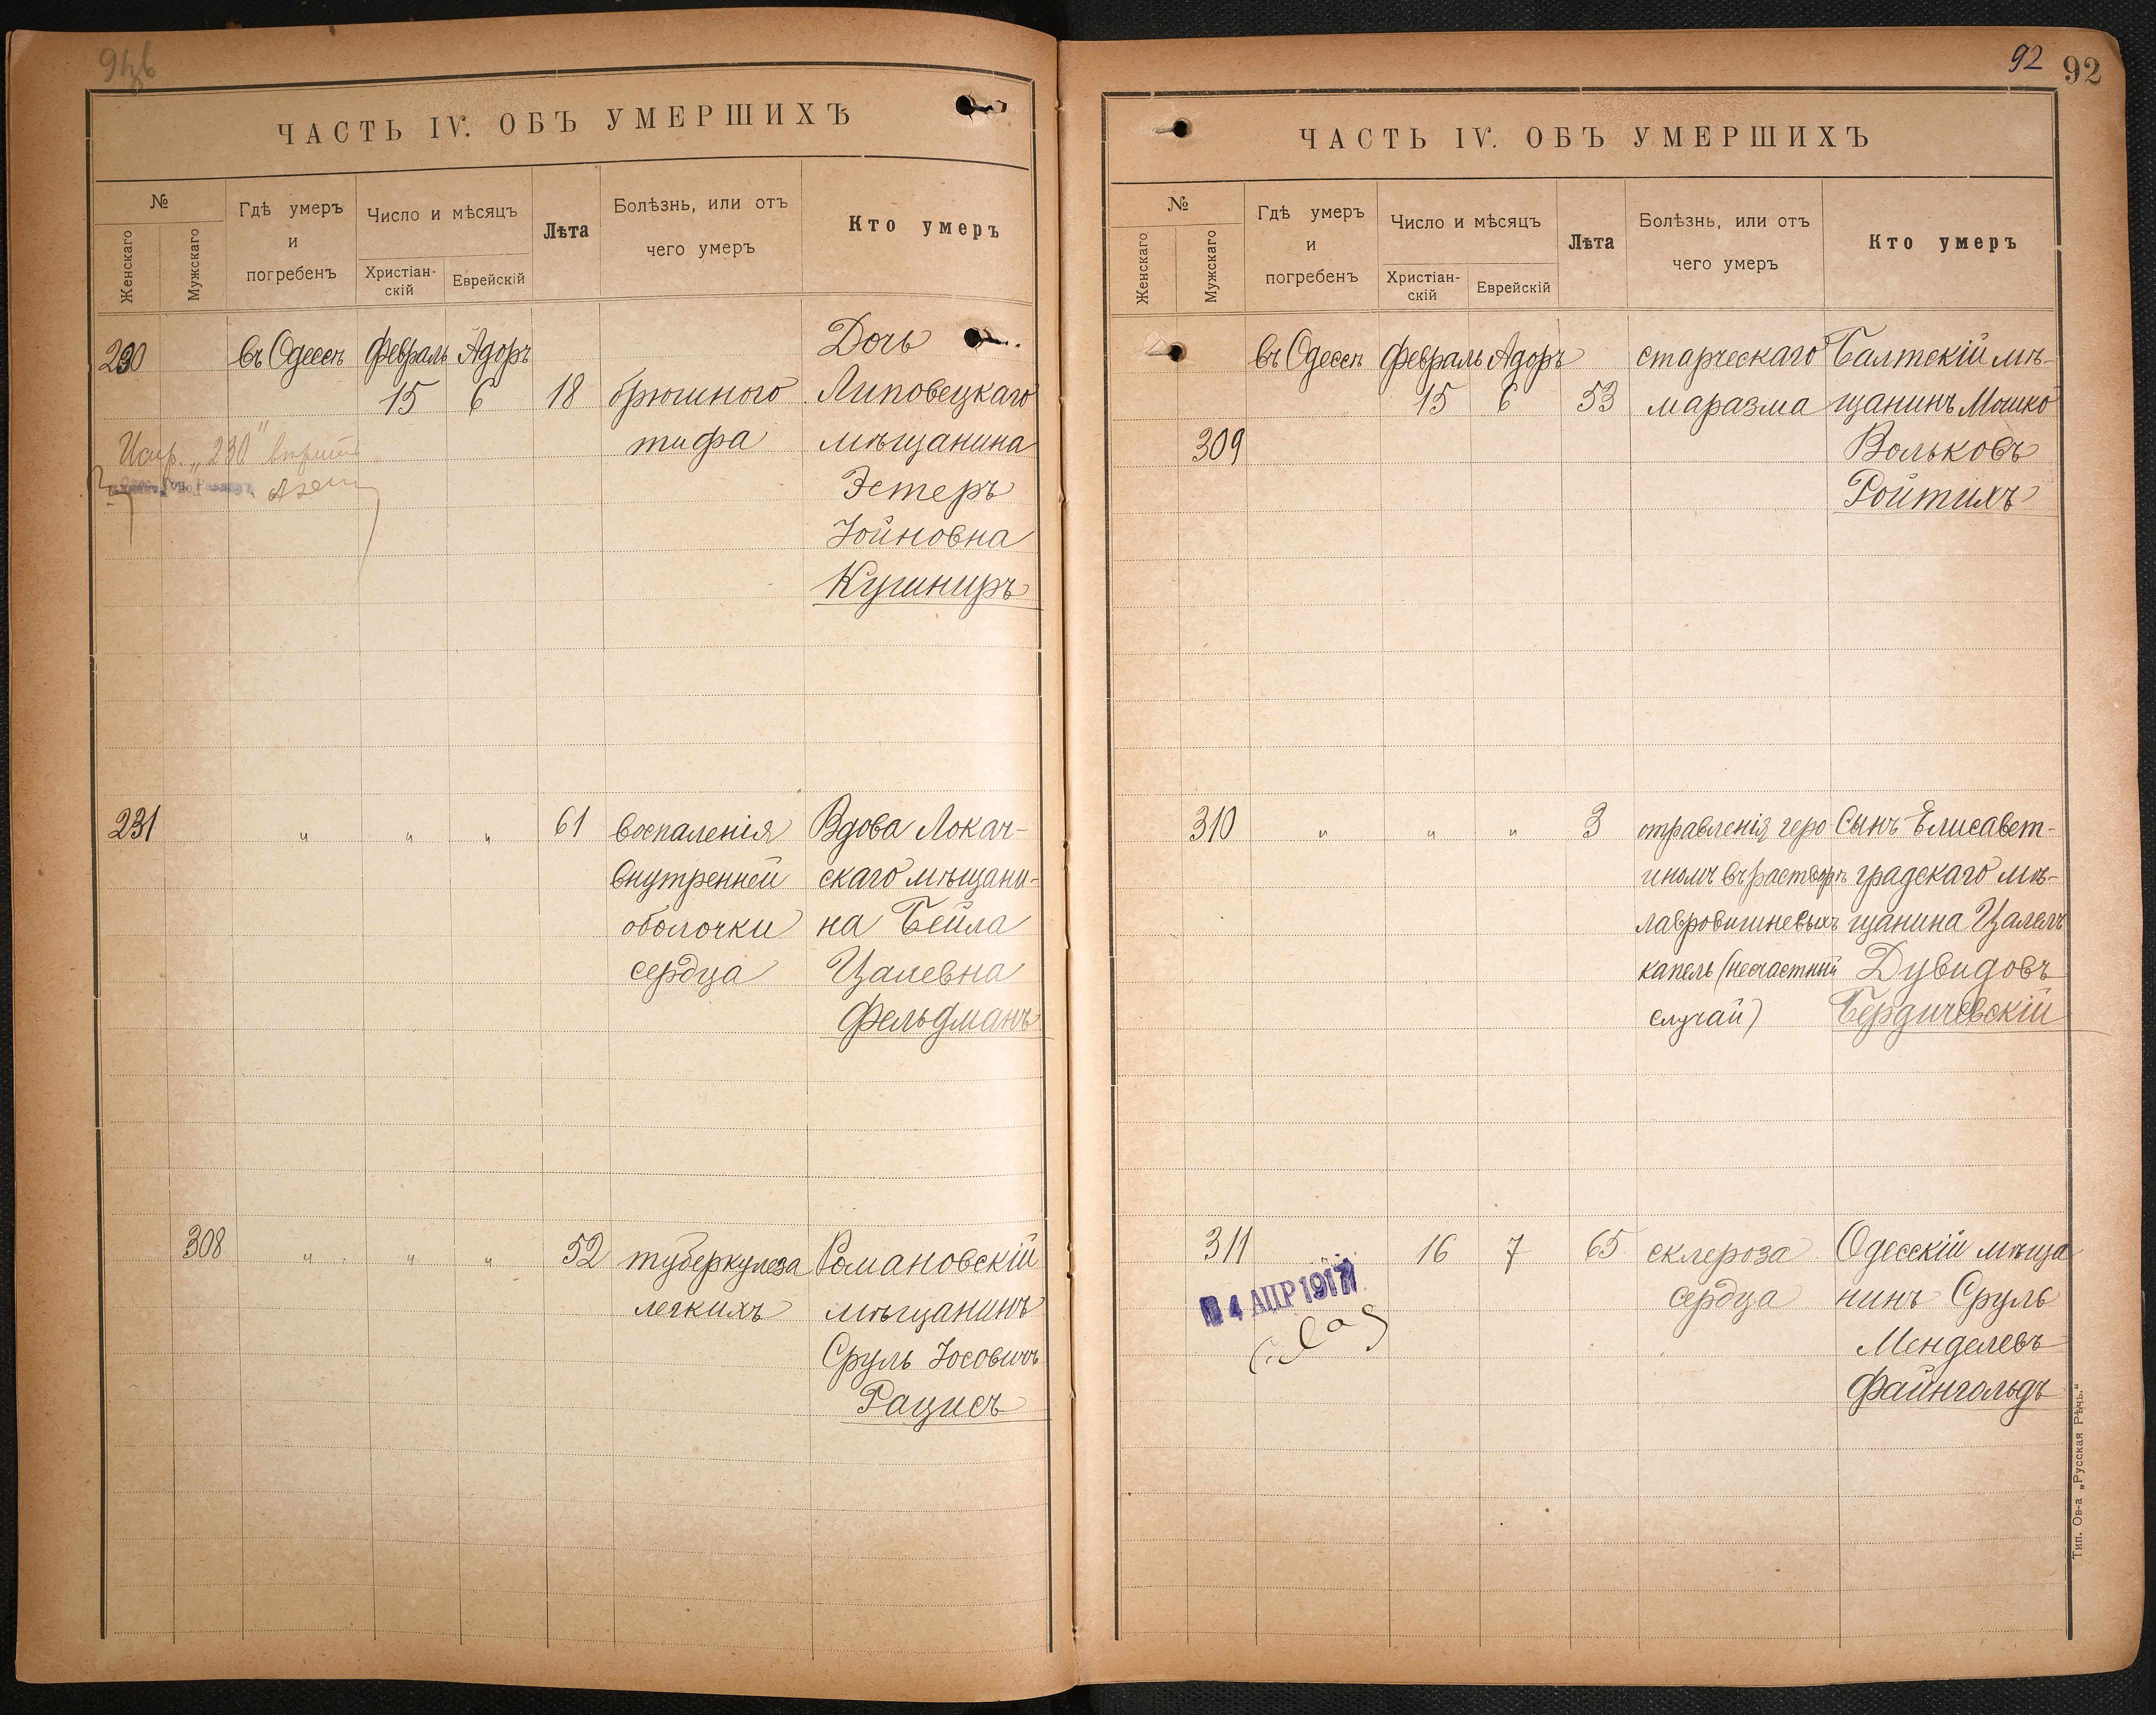 ЧАСТЬ IV. ОБЪ УМЕРШИХЪ
№
Женскаго
Мужскаго
Гдѣ умеръ
и
погребенъ
Число и мѣсяцъ
Христіан-
скій
Еврейскій
Лѣта
Болѣзнь, или отъ
чего умеръ
Кто умеръ
230
въ Одессѣ
Февраль
15
Адоръ
6
18
брюшного
тифа
Дочь
Липовецкаго
мѣщанина
Эстеръ
Іойновна
Кушниръ
Испр. „230" вѣрить
231
"
"
"
61
воспаленія
внутренней
оболочки
сердца
Вдова Локач-
скаго мѣщани-
на Бейла
Цалевна
Фельдманъ
308
"
"
"
52
туберкулеза
легкихъ
Романовскій
мѣщанинъ
Сруль Іосовичъ
Рацисъ
92
92
ЧАСТЬ IV. ОБЪ УМЕРШИХЪ
№
Женскаго
Мужскаго
Гдѣ умеръ
и
погребенъ
Число и мѣсяцъ
Христіан-
скій
Еврейскій
Лѣта
Болѣзнь, или отъ
чего умеръ
Кто умеръ
309
въ Одессѣ
Февраль
15
Адоръ
6
53
старческаго
маразма
Балтскій мѣ-
щанинъ Мошко
Вольковъ
Ройтихъ
310
"
"
"
3
отравленія геро
иномъ въ растворѣ
лавровишневыхъ
капель (несчастный
случай)
Сынъ Елисавет-
градскаго мѣ-
щанина Цалель
Дувидовъ
Бердичевскій
311
16
7
65
склероза
сердца
Одесскій мѣща
нинъ Сруль
Менделевъ
Файнгольдъ
4 АПР 1917
Тип. Ов-а „Русская Рѣчь."